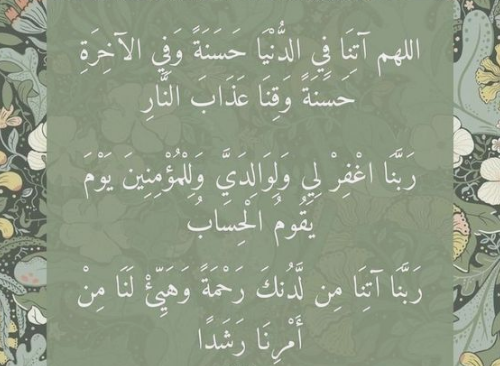 اللهم آتِنَا فِي الدُّنْيَا حَسَنَةً وَفِي الآخِرَةِ
حَسَنَةً وَقِنَا عَذَابَ النَّارِ
رَبَّنَا اغْفِرْ لِي وَلِوَالِدَيَّ وَلِلْمُؤْمِنِينَ يَوْمَ
يَقُومُ الْحِسَابُ
رَبَّنَا آتِنَا مِن لَّدُنكَ رَحْمَةً وَهَيِّئْ لَنَا مِنْ
أَمْرِنَا رَشَدًا